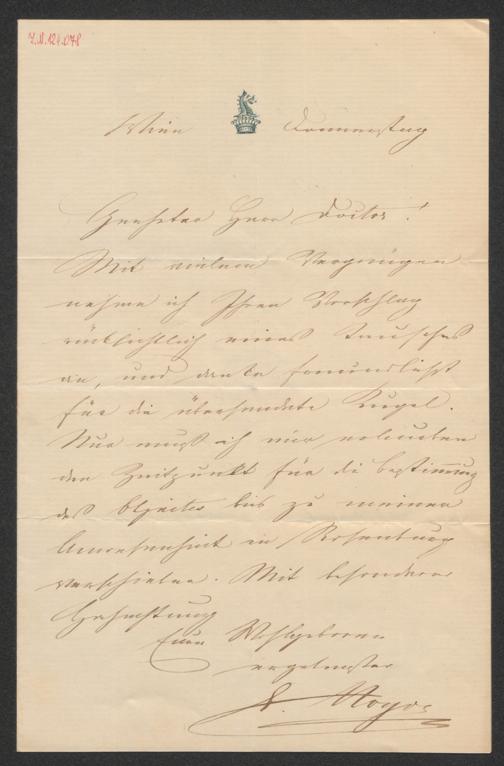 I.N. 124.078
Wien Donnerstag
Geehrter Herr Doctor!
Mit vielem Vergnügen
nehme ich Ihren Vorschlag
rücksichtlich eines Tausches
an, und danke freundlichst
für die übersendete Kugel.
Nur muß ich mir erlauben
den Zeitpunkt für die Bestimmung
des Objectes bis zu meiner
Anwesenheit in Rosenburg
verschieben. Mit besonderer
Hochachtung
Euer Wohlgeboren
ergebenster
Hoyos